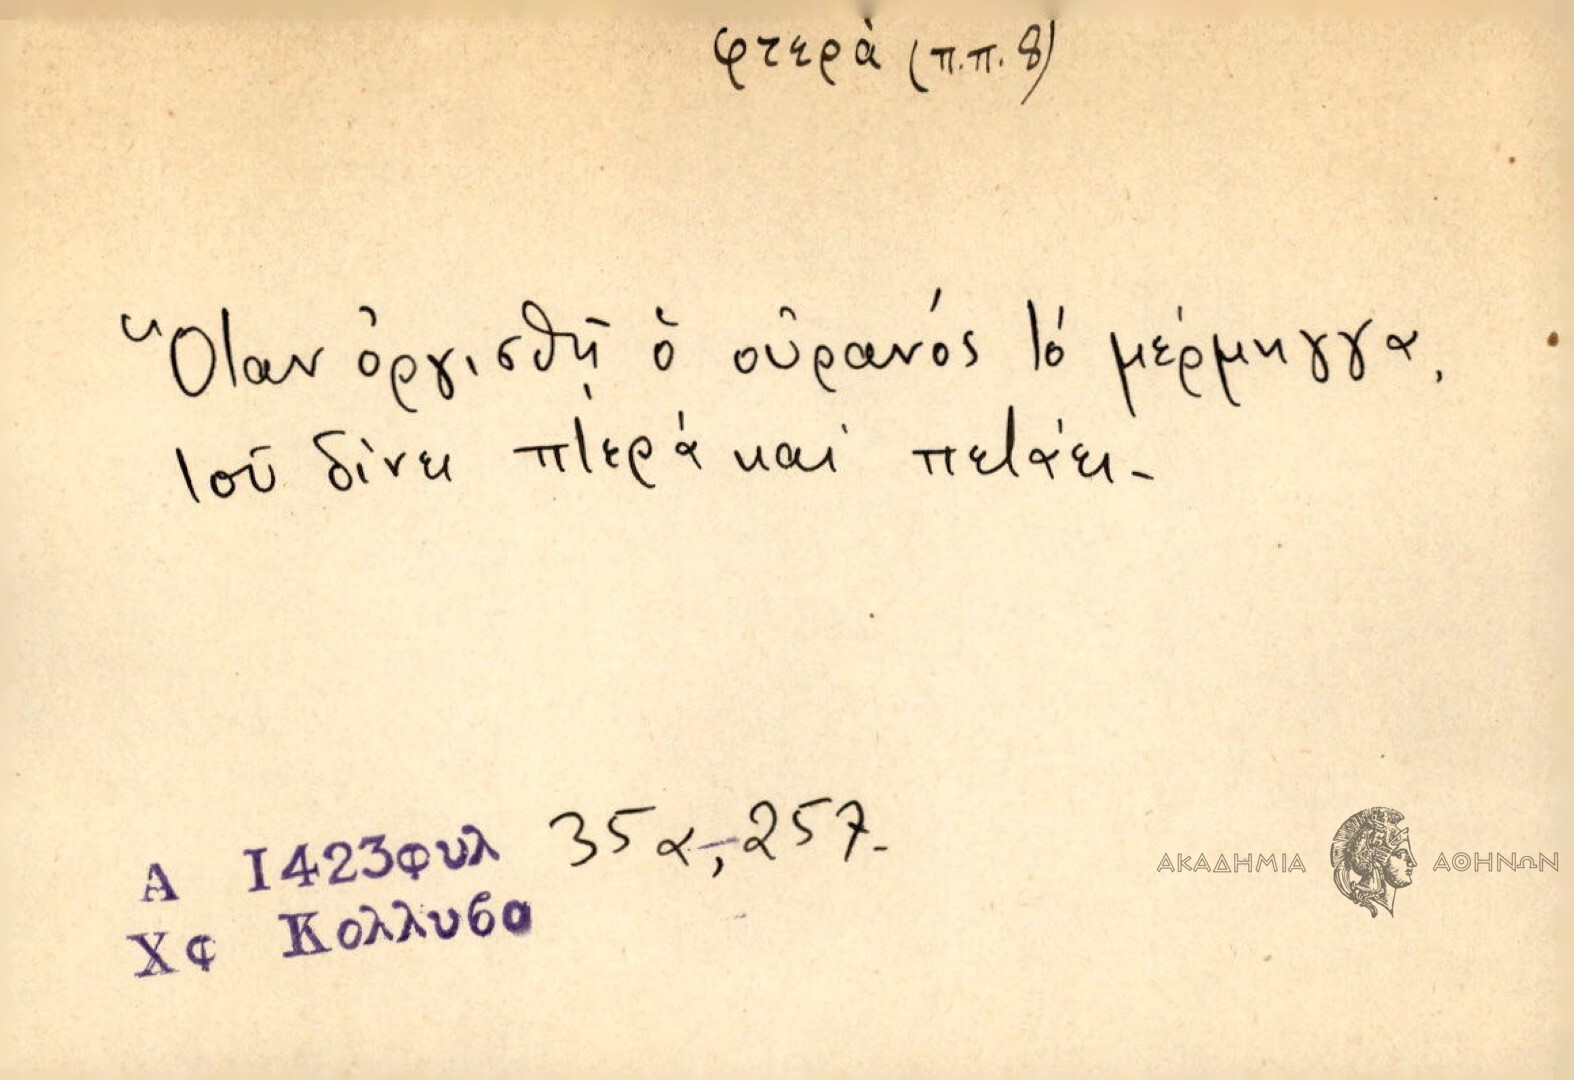 φτερὰ (π.π. 8)
Ὅταν ὀργισθῇ ὁ οὐρανός τό μέρμηγγα,
τοῦ δίνει πτερά καί πετάει-
Α 1423φυλ 35α, 257.
Χφ Κολλυβα
ΑΚΑΔΗΜΙΑ ΑΘΗΝΩΝ